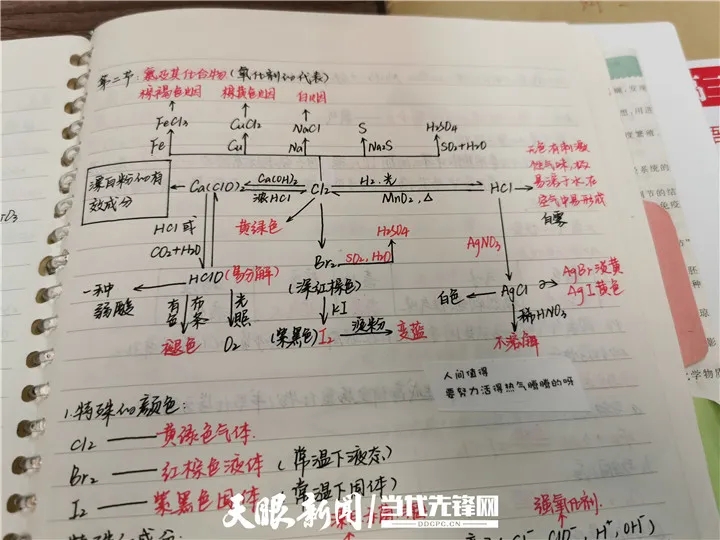 第二节:氯及其化合物(氧化剂的代表)
棕褐色烟 棕黄色烟 白烟
FeCl3 CuCl2 NaCl S H2SO4
Fe Cu Na Na2S SO2+H2O
漂白粉的有效成分
Ca(ClO)2 Ca(OH)2 浓HCl Cl2 H2、光 MnO2、△ HCl
无色有刺激
性气味,极
易溶于水,在
空气中易形成
白雾
HCl或
CO2+H2O
黄绿色
H2SO4
AgNO3
Br2 SO2、H2O
HClO(易分解) (深红棕色)
一种
弱酸
有色布条 光照 KI
白色 AgCl AgBr淡黄
AgI黄色
稀HNO3
褪色 O2 (紫黑色)I2 淀粉 变蓝 不溶解
人间值得
要努力活得热气腾腾的呀
1.特殊的颜色:
Cl2 —— 黄绿色气体.
Br2 —— 红棕色液体(常温下液态)
I2 —— 紫黑色固体(常温下固体)
天眼新闻 当代先锋网
DDCPC.CN
强氧化剂.
Cl- ClO- H+, OH-)